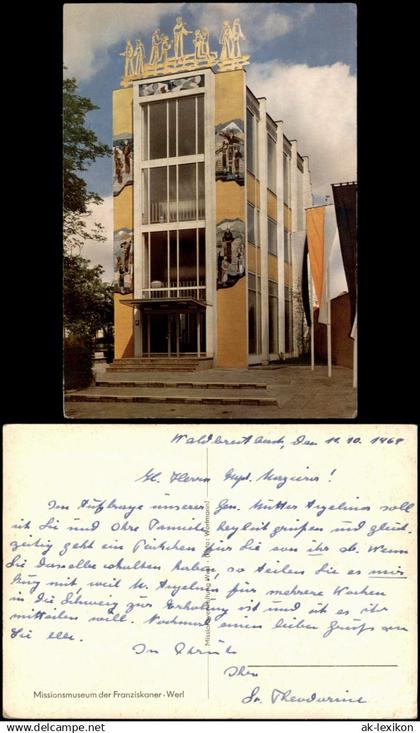 Waldbreitbach, den 11.10.1968
Herrn
Im Auftrage unserer Gen. Mutter Angelina soll
ich Sie und Ihre Familie grüßen und gleich-
zeitig geht ein Päckchen für Sie von ihr ab. Wenn
Sie dasselbe erhalten haben, so teilen Sie es mir
mit, weil M. Angelina für mehrere Wochen
in die Schweiz zur Erholung ist und ich es ihr
mitteilen will. Nochmals einen lieben Gruß an
Sie alle.
In Christo
Ihre
Sr. Theodorine
Missionsmuseum der Franziskaner · Werl
ak-lexikon.com